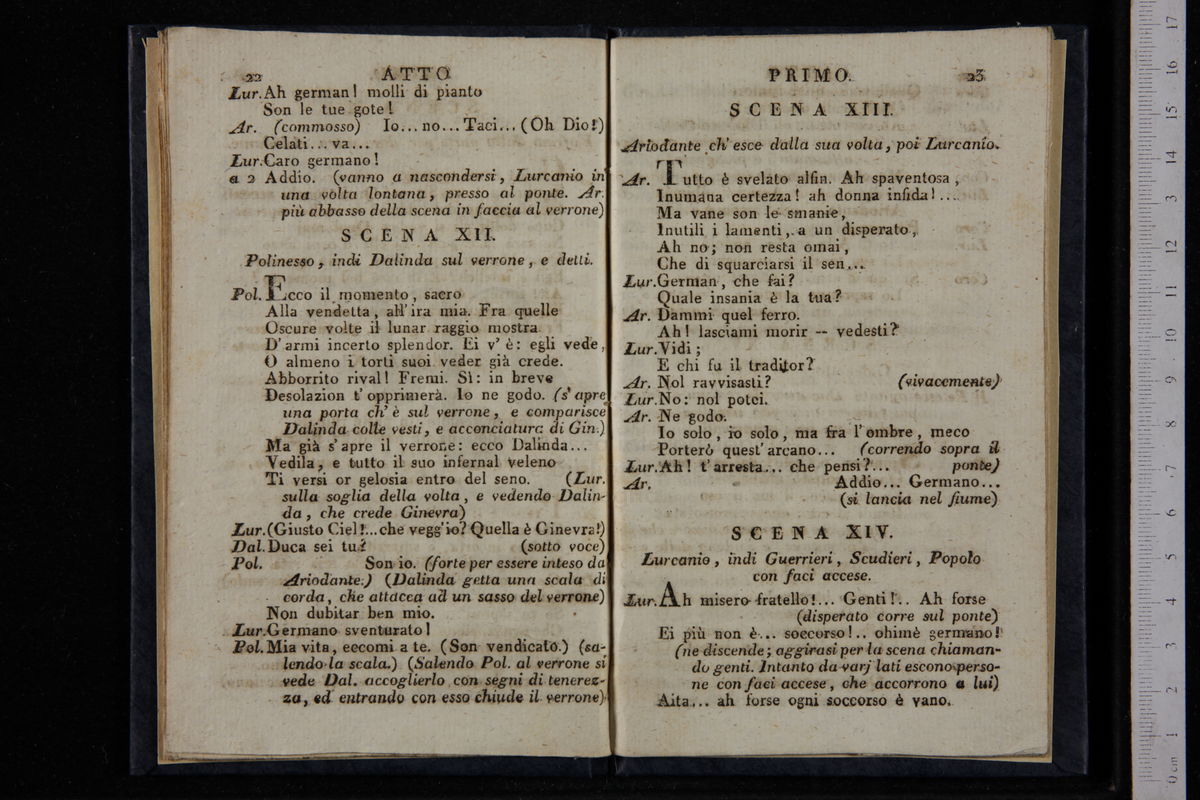 22 ATTO
Lur. Ah german! molli di pianto
Son le tue gote!
Ar. (commosso) Io... no... Taci... (Oh Dio!)
Celati... va...
Lur. Caro germano!
a 2 Addio. (vanno a nascondersi, Lurcanio in
una volta lontana, presso al ponte. Ar.
più abbasso della scena in faccia al verrone)
SCENA XII.
Polinesso, indi Dalinda sul verrone, e detti.
Pol. Ecco il momento, sacro
Alla vendetta, all' ira mia. Fra quelle
Oscure volte il lunar raggio mostra
D' armi incerto splendor. Ei v' è: egli vede,
O almeno i torti suoi veder già crede.
Abborrito rival! Fremi. Sì: in breve
Desolazion t' opprimerà. Io ne godo. (s' apre
una porta ch' è sul verrone, e comparisce
Dalinda colle vesti, e acconciatura di Gin.)
Ma già s' apre il verrone: ecco Dalinda...
Vedila, e tutto il suo infernal veleno
Ti versi or gelosia entro del seno. (Lur.
sulla soglia della volta, e vedendo Dalin-
da, che crede Ginevra)
Lur. (Giusto Ciel!... che vegg' io? Quella è Ginevra!)
Dal. Duca sei tu? (sotto voce)
Pol. Son io. (forte per essere inteso da
Ariodante.) (Dalinda getta una scala di
corda, che attacca ad un sasso del verrone)
Non dubitar ben mio.
Lur. Germano sventurato!
Pol. Mia vita, eccomi a te. (Son vendicato.) (sa-
lendo la scala.) (Salendo Pol. al verrone si
vede Dal. accoglierlo con segni di tenerez-
za, ed entrando con esso chiude il verrone)
PRIMO. 23
SCENA XIII.
Ariodante ch' esce dalla sua volta, poi Lurcanio.
Ar. Tutto è svelato alfin. Ah spaventosa,
Inumana certezza! ah donna infida!....
Ma vane son le smanie,
Inutili i lamenti, a un disperato,
Ah no; non resta omai,
Che di squarciarsi il sen...
Lur. German, che fai?
Quale insania è la tua?
Ar. Dammi quel ferro.
Ah! lasciami morir -- vedesti?
Lur. Vidi;
E chi fu il traditor?
Ar. Nol ravvisasti? (vivacemente)
Lur. No: nol potei.
Ar. Ne godo.
Io solo, io solo, ma fra l' ombre, meco
Porterò quest' arcano... (correndo sopra il
Lur. Ah! t' arresta... che pensi?... ponte)
Ar. Addio... Germano...
(si lancia nel fiume)
SCENA XIV.
Lurcanio, indi Guerrieri, Scudieri, Popolo
con faci accese.
Lur. Ah misero fratello!... Genti!.. Ah forse
(disperato corre sul ponte)
Ei più non è... soccorso!.. ohimè germano!
(ne discende; aggirasi per la scena chiaman-
do genti. Intanto da varj lati escono perso-
ne con faci accese, che accorrono a lui)
Aita... ah forse ogni soccorso è vano.
0 cm 1 2 3 4 5 6 7 8 9 10 11 12 13 14 15 16 17